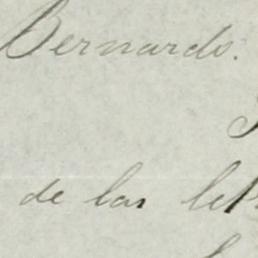 Bernardo.
de las